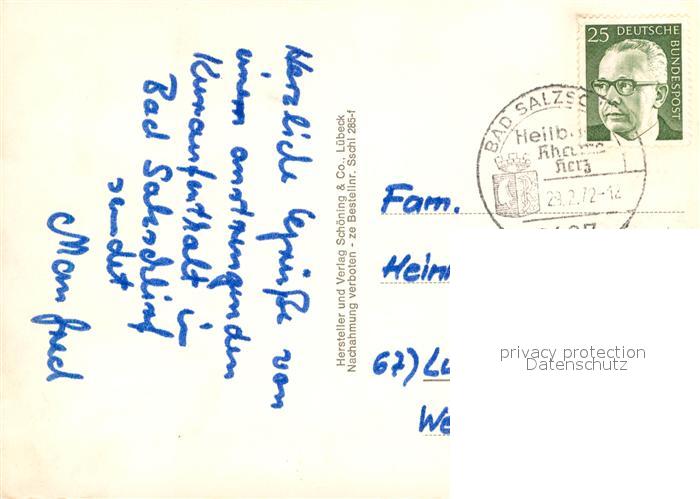 Herzliche Grüße von
einem anstrengenden
Kuraufenthalt in
Bad Salzschlirf
sendet
Manfred
Hersteller und Verlag Schöning & Co., Lübeck
Nachahmung verboten - ze Bestellnr. Sschl 285-f
25 DEUTSCHE
BUNDESPOST
BAD SALZSC
Heilb
Rheuma
Herz
29.2.72-12
Fam.
Hein
67) Lu
We
privacy protection
Datenschutz